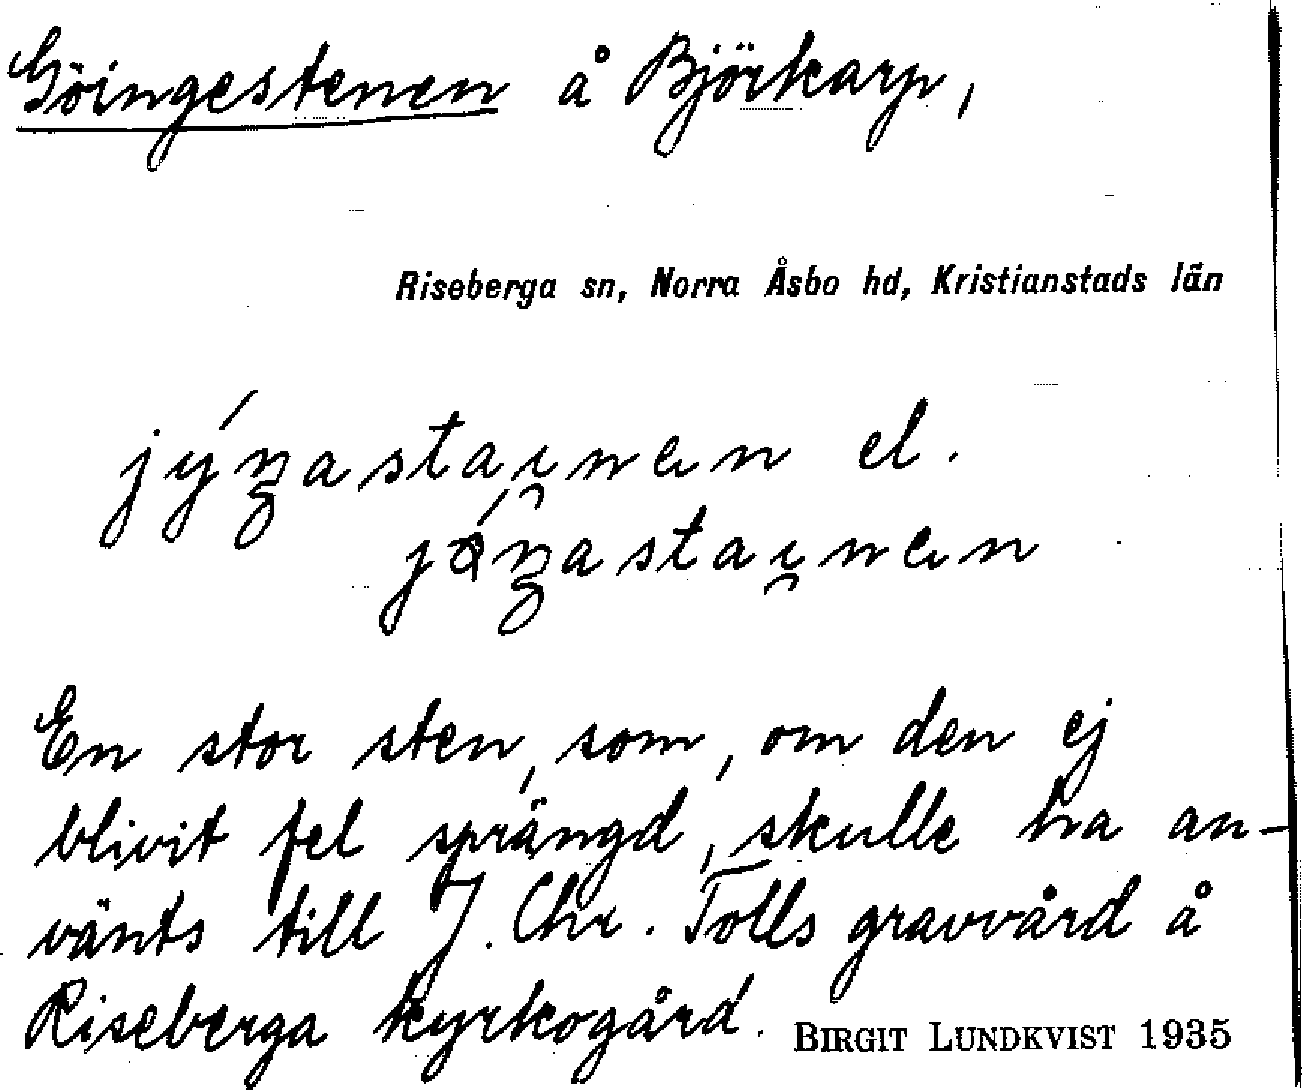 Göingestenen å Björkarp,
Riseberga sn, Norra Åsbo hd, Kristianstads län
jýŋastai̯nen el.
jǿŋastai̯nen
En stor sten, som, om den ej
blivit fel sprängd, skulle ha an-
vänts till J. Chr. Tolls gravvård å
Riseberga kyrkogård. BIRGIT LUNDKVIST 1935